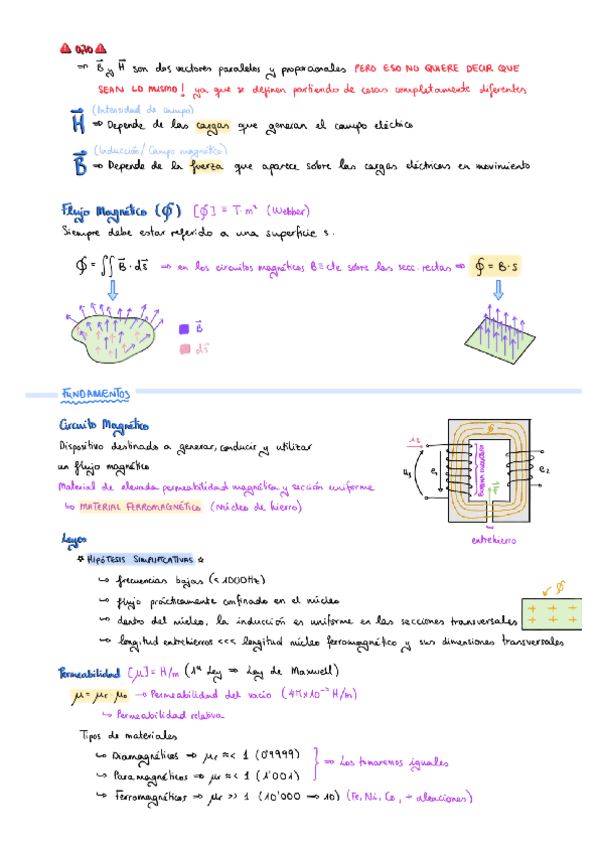 ⚠ OJO ⚠
⇒ B⃗ y H⃗ son dos vectores paralelos y proporcionales PERO ESO NO QUIERE DECIR QUE
SEAN LO MISMO! ya que se definen partiendo de cosas completamente diferentes
(Intensidad de campo)
H⃗ ⇒ Depende de las cargas que generan el campo eléctrico
(Inducción / Campo magnético)
B⃗ ⇒ Depende de la fuerza que aparece sobre las cargas eléctricas en movimiento
Flujo Magnético (ϕ) [ϕ] = T·m² (Webber)
Siempre debe estar referido a una superficie s.
ϕ = ∬ B⃗ · ds⃗ ⇒ en los circuitos magnéticos B ≡ cte sobre las secc. rectas ⇒ ϕ = B·s
B⃗
ds⃗
FUNDAMENTOS
Circuito Magnético
Dispositivo destinado a generar, conducir y utilizar
un flujo magnético
Material de elevada permeabilidad magnética y sección uniforme
↳ MATERIAL FERROMAGNÉTICO (Núcleo de hierro)
ϕ
e₁
e₂
entrehierro
Leyes
☆ HIPÓTESIS SIMPLIFICATIVAS ☆
↳ frecuencias bajas (< 1000Hz)
↳ flujo prácticamente confinado en el núcleo
↳ dentro del núcleo, la inducción es uniforme en las secciones transversales
↳ longitud entrehierros <<< longitud núcleo ferromagnético y sus dimensiones transversales
ϕ
Permeabilidad [μ] = H/m (1ª Ley ⇒ Ley de Maxwell)
μ = μr · μ₀ → Permeabilidad del vacío (4π×10⁻⁷ H/m)
↳ Permeabilidad relativa
Tipos de materiales
↳ Diamagnéticos ⇒ μr ≈< 1 (0'9999)
↳ Paramagnéticos ⇒ μr ≈< 1 (1'001)
} ⇒ Los tomaremos iguales
↳ Ferromagnéticos ⇒ μr >> 1 (10'000 → 10) (Fe, Ni, Co, + aleaciones)